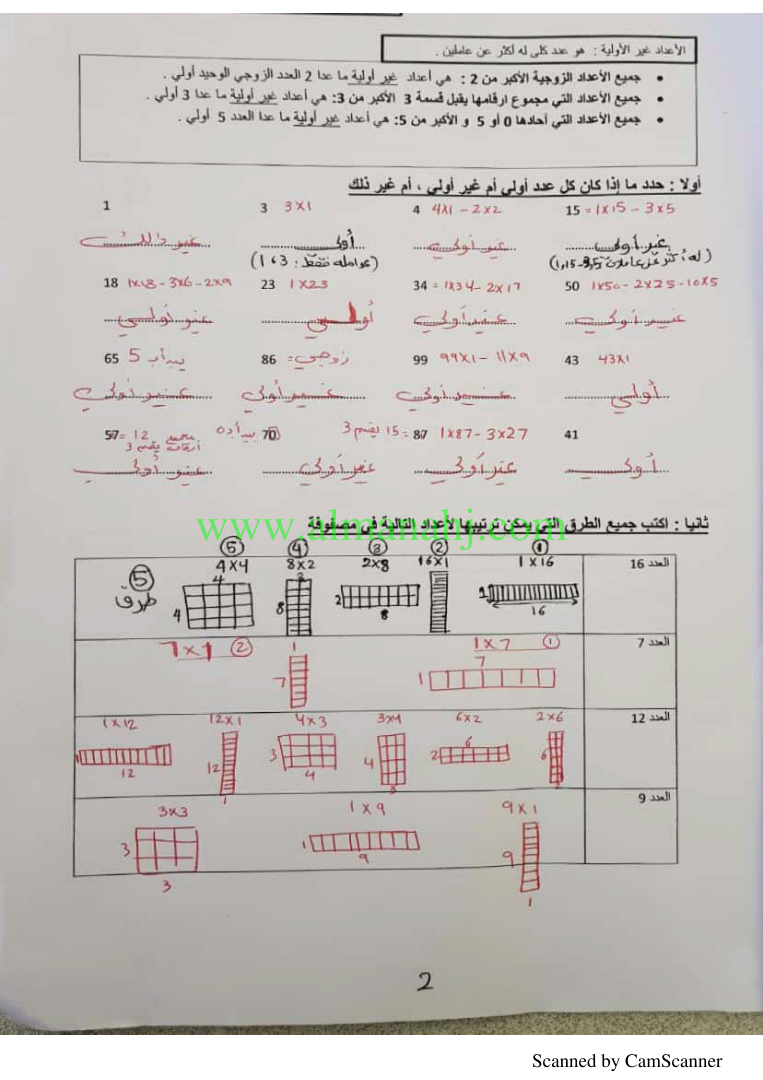 الأعداد غير الأولية : هو عدد كلي له أكثر عن عاملين .
• جميع الأعداد الزوجية الأكبر من 2 : هي أعداد غير أولية ما عدا 2 العدد الزوجي الوحيد أولي .
• جميع الأعداد التي مجموع ارقامها يقبل قسمة 3 الأكبر من 3: هي أعداد غير أولية ما عدا 3 أولي .
• جميع الأعداد التي أحادها 0 أو 5 و الأكبر من 5: هي أعداد غير أولية ما عدا العدد 5 أولي .
أولا : حدد ما إذا كان كل عدد أولي أم غير أولي ، أم غير ذلك
1 3 3×1 4 4×1 - 2×2 15 = 1×15 - 3×5
غير ذلك أولي غير أولي غير أولي
(عوامله فقط : 3 ، 1)
18 1×18 - 3×6 - 2×9 23 1×23 34 = 1×34 - 2×17 50 1×50 - 2×25 - 10×5
غير أولي أولي غير أولي غير أولي
65 5 86 زوجي 99 99×1 - 11×9 43 43×1
غير أولي غير أولي غير أولي أولي
57 = 12 مجموع أرقامه يقسم 3 70 87 = 15 يقسم 3 1×87 - 3×27 41
غير أولي غير أولي غير أولي أولي
ثانيا : اكتب جميع الطرق التي يمكن ترتيبها لأعداد التالية في مصفوفة
www.almanahj.com
العدد 16
① ② ③ ④ ⑤
1×16 16×1 2×8 8×2 4×4
16 2 8 8 2 4 4
5 طرق
العدد 7
① 1×7 ② 7×1
7 1 1 7
العدد 12
2×6 6×2 3×4 4×3 12×1 1×12
6 2 6 2 4 3 3 4 12 1 12
العدد 9
9×1 1×9 3×3
9 1 1 9 3 3
2
Scanned by CamScanner